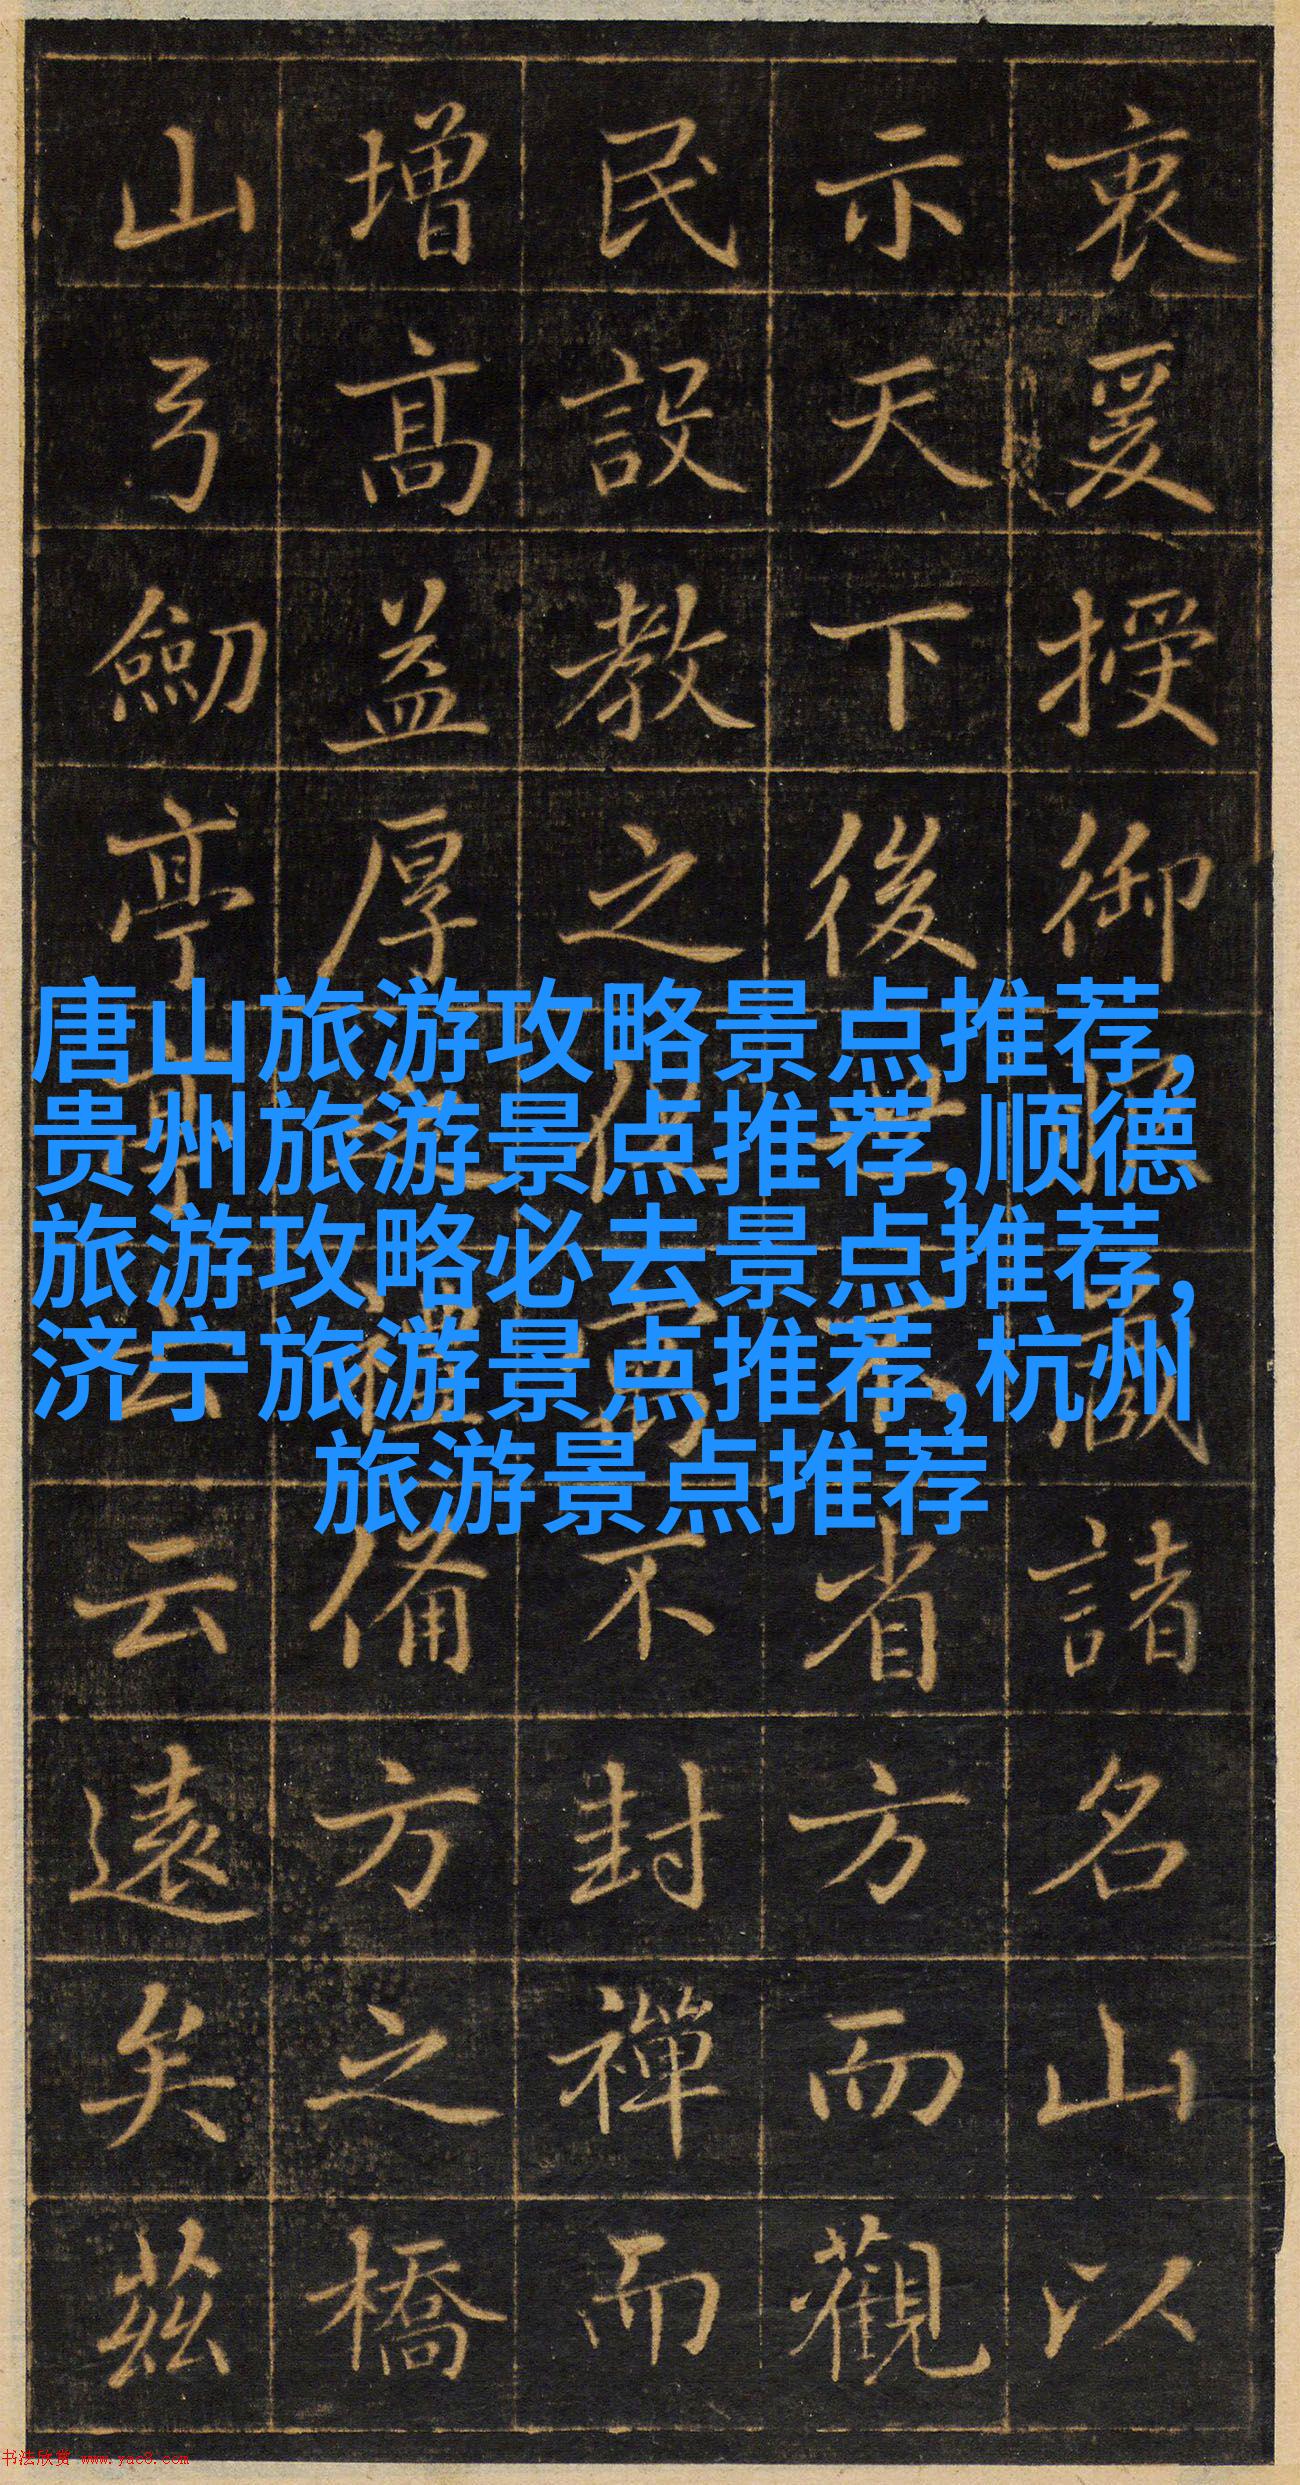 衷爰授御藏諸名山以
示天下後世不省方而觀
民設教之化不封禪而
增高益厚之禮備方之橋
山弓劒亭亭云云遠矣茲
唐山旅游攻略景点推荐,
贵州旅游景点推荐,顺德
旅游攻略必去景点推荐,
济宁旅游景点推荐,杭州
旅游景点推荐
书法欣赏 www.yac8.com